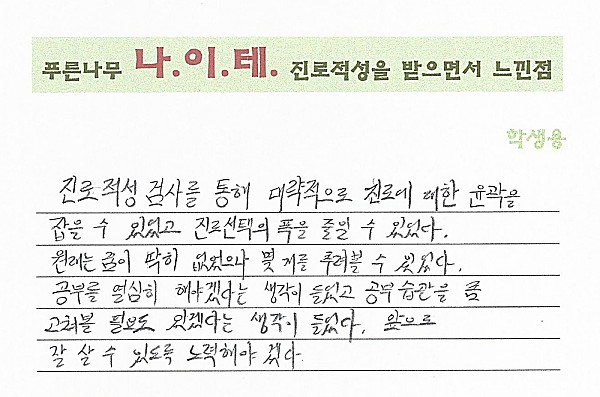 푸른나무 나.이.테. 진로적성을 받으면서 느낀점
학생용
진로적성 검사를 통해 대략적으로 진로에 대한 윤곽을
잡을 수 있었고 진로선택의 폭을 줄일 수 있었다.
원래는 꿈이 딱히 없었으나 몇 개를 추려볼 수 있었다.
공부를 열심히 해야겠다는 생각이 들었고 공부습관을 좀
고쳐볼 필요도 있겠다는 생각이 들었다. 앞으로
잘 살 수 있도록 노력해야 겠다.